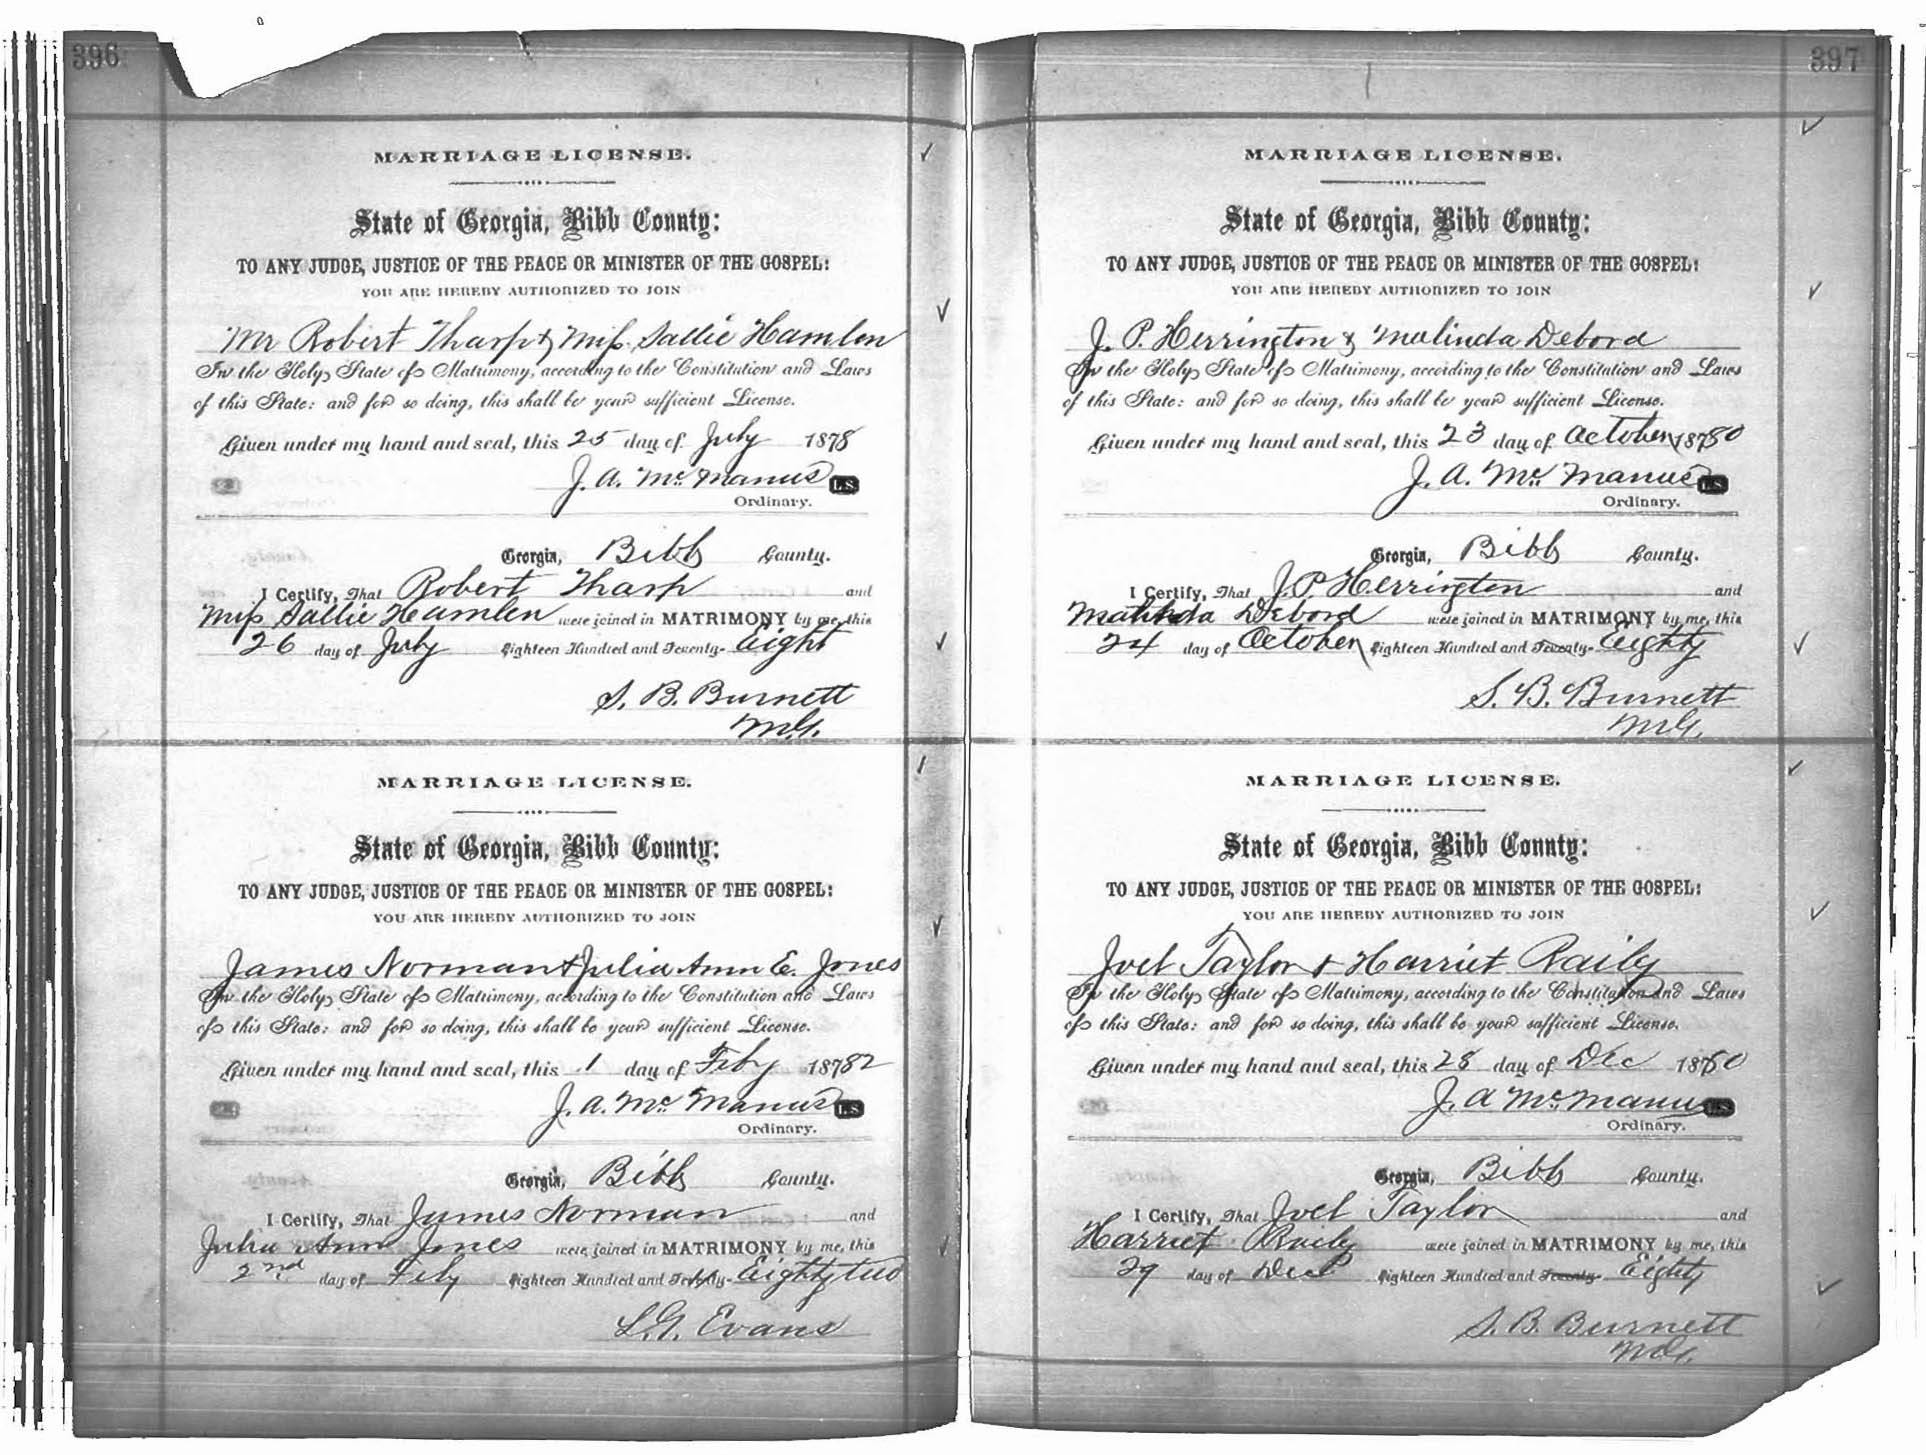 396
MARRIAGE LICENSE.
State of Georgia, Bibb County:
TO ANY JUDGE, JUSTICE OF THE PEACE OR MINISTER OF THE GOSPEL:
YOU ARE HEREBY AUTHORIZED TO JOIN
Mr Robert Tharp & Miss Sallie Hamlen
In the Holy State of Matrimony, according to the Constitution and Laws
of this State: and for so doing, this shall be your sufficient License.
Given under my hand and seal, this 25 day of July 1878
J. A. McManus L.S.
Ordinary.
Georgia, Bibb County.
I Certify, That Robert Tharp and
Miss Sallie Hamlen were joined in MATRIMONY by me, this
26 day of July Eighteen Hundred and Seventy- Eight
S. B. Burnett
M.G.
MARRIAGE LICENSE.
State of Georgia, Bibb County:
TO ANY JUDGE, JUSTICE OF THE PEACE OR MINISTER OF THE GOSPEL:
YOU ARE HEREBY AUTHORIZED TO JOIN
James Norman & Julia Ann E. Jones
In the Holy State of Matrimony, according to the Constitution and Laws
of this State: and for so doing, this shall be your sufficient License.
Given under my hand and seal, this 1 day of Feby 18782
J. A. McManus L.S.
Ordinary.
Georgia, Bibb County.
I Certify, That James Norman and
Julia Ann Jones were joined in MATRIMONY by me, this
2nd day of Feby Eighteen Hundred and Seventy- Eighty two
L. G. Evans
397
MARRIAGE LICENSE.
State of Georgia, Bibb County:
TO ANY JUDGE, JUSTICE OF THE PEACE OR MINISTER OF THE GOSPEL:
YOU ARE HEREBY AUTHORIZED TO JOIN
J. P. Herrington & Malinda Debord
In the Holy State of Matrimony, according to the Constitution and Laws
of this State: and for so doing, this shall be your sufficient License.
Given under my hand and seal, this 23 day of October 18780
J. A. McManus L.S.
Ordinary.
Georgia, Bibb County.
I Certify, That J. P. Herrington and
Malinda Debord were joined in MATRIMONY by me, this
24 day of October Eighteen Hundred and Seventy- Eighty
S. B. Burnett
M.G.
MARRIAGE LICENSE.
State of Georgia, Bibb County:
TO ANY JUDGE, JUSTICE OF THE PEACE OR MINISTER OF THE GOSPEL:
YOU ARE HEREBY AUTHORIZED TO JOIN
Joel Taylor & Harriet Raily
In the Holy State of Matrimony, according to the Constitution and Laws
of this State: and for so doing, this shall be your sufficient License.
Given under my hand and seal, this 28 day of Dec 1880
J. A McManus L.S.
Ordinary.
Georgia, Bibb County.
I Certify, That Joel Taylor and
Harriet Raily were joined in MATRIMONY by me, this
29 day of Dec Eighteen Hundred and Seventy- Eighty
S. B. Burnett
M.G.